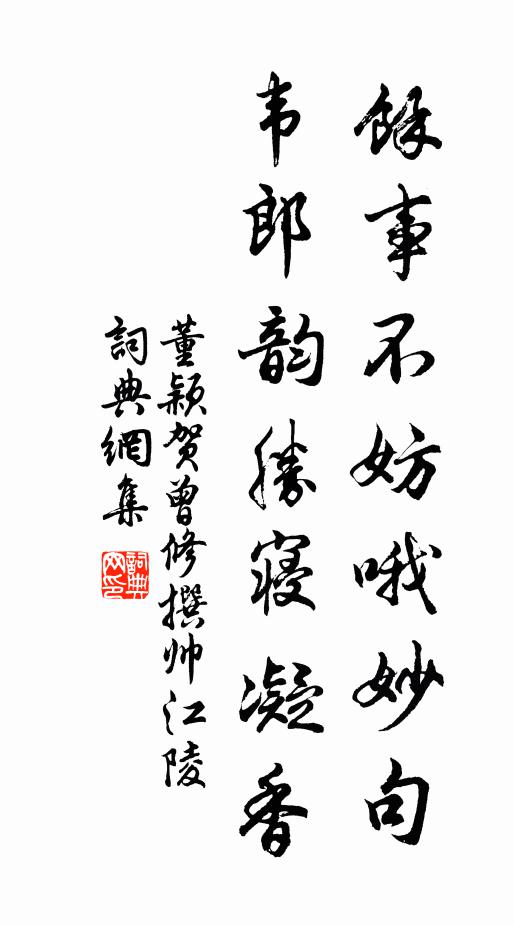 餘事不妨哦妙句
韦郎韵勝寝凝香
董颖贺曾修撰帅江陵
詞典網集
詞典
网印